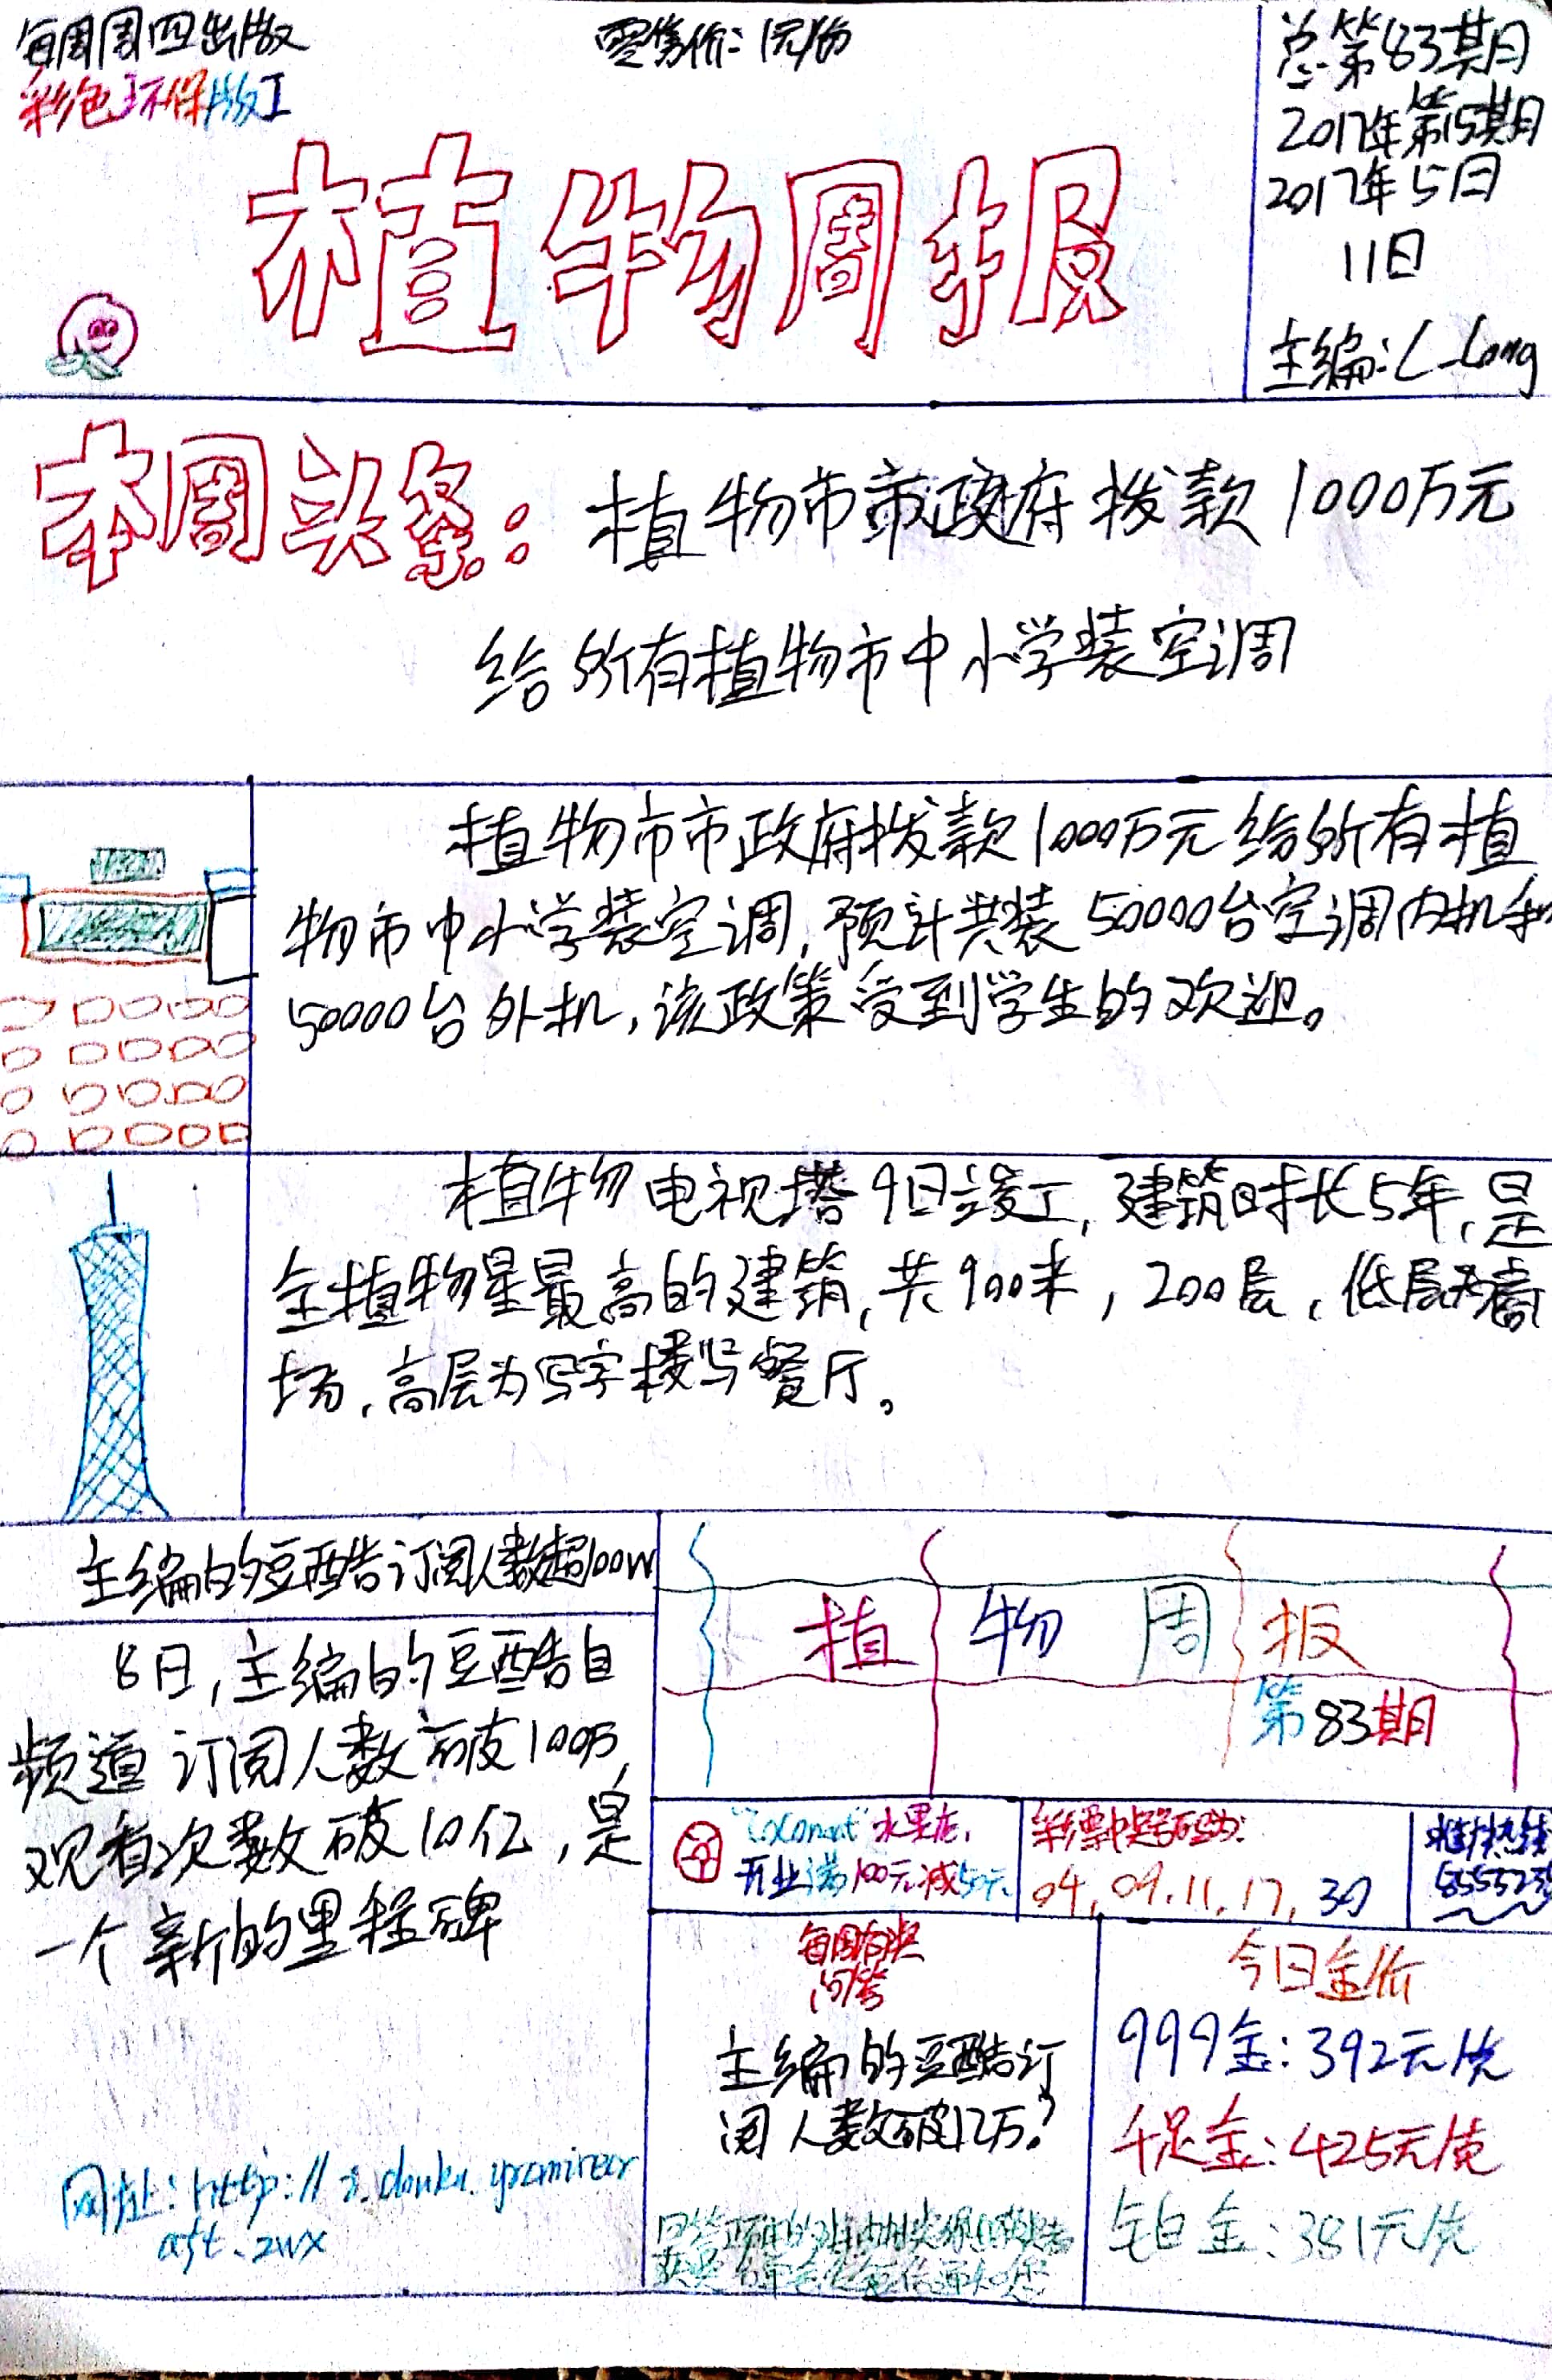 每周周四出版
零售价:1元/份
彩色环保版
总第83期
2017年第15期
2017年5日
11日
主编:L-Long
植物周报
本周头条:植物市市政府拨款1000万元
给所有植物市中小学装空调
植物市市政府拨款1000万元给所有植
物市中小学装空调,预计共装50000台空调内机和
50000台外机,该政策受到学生的欢迎。
植物电视塔9日竣工,建筑时长5年,是
全植物星最高的建筑,共900米,200层,低层为商
场,高层为写字楼与餐厅。
主编的豆酷订阅人数超100W
8日,主编的豆酷自
频道订阅人数破100万,
观看次数破10亿,是
一个新的里程碑
网址:http://
植物周报
第83期
水果店,
开业满100元减50元
彩票中奖号码:
04,09,11,17,30
每周有奖
问答
主编的豆酷订
阅人数破12万?
今日金价
999金:392元/克
千足金:425元/克
铂金:381元/克